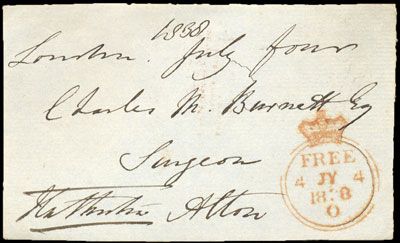 1838
London. July four
Charles M. Burnett Esq
Surgeon
Alton
FREE
4 JY 4
1838